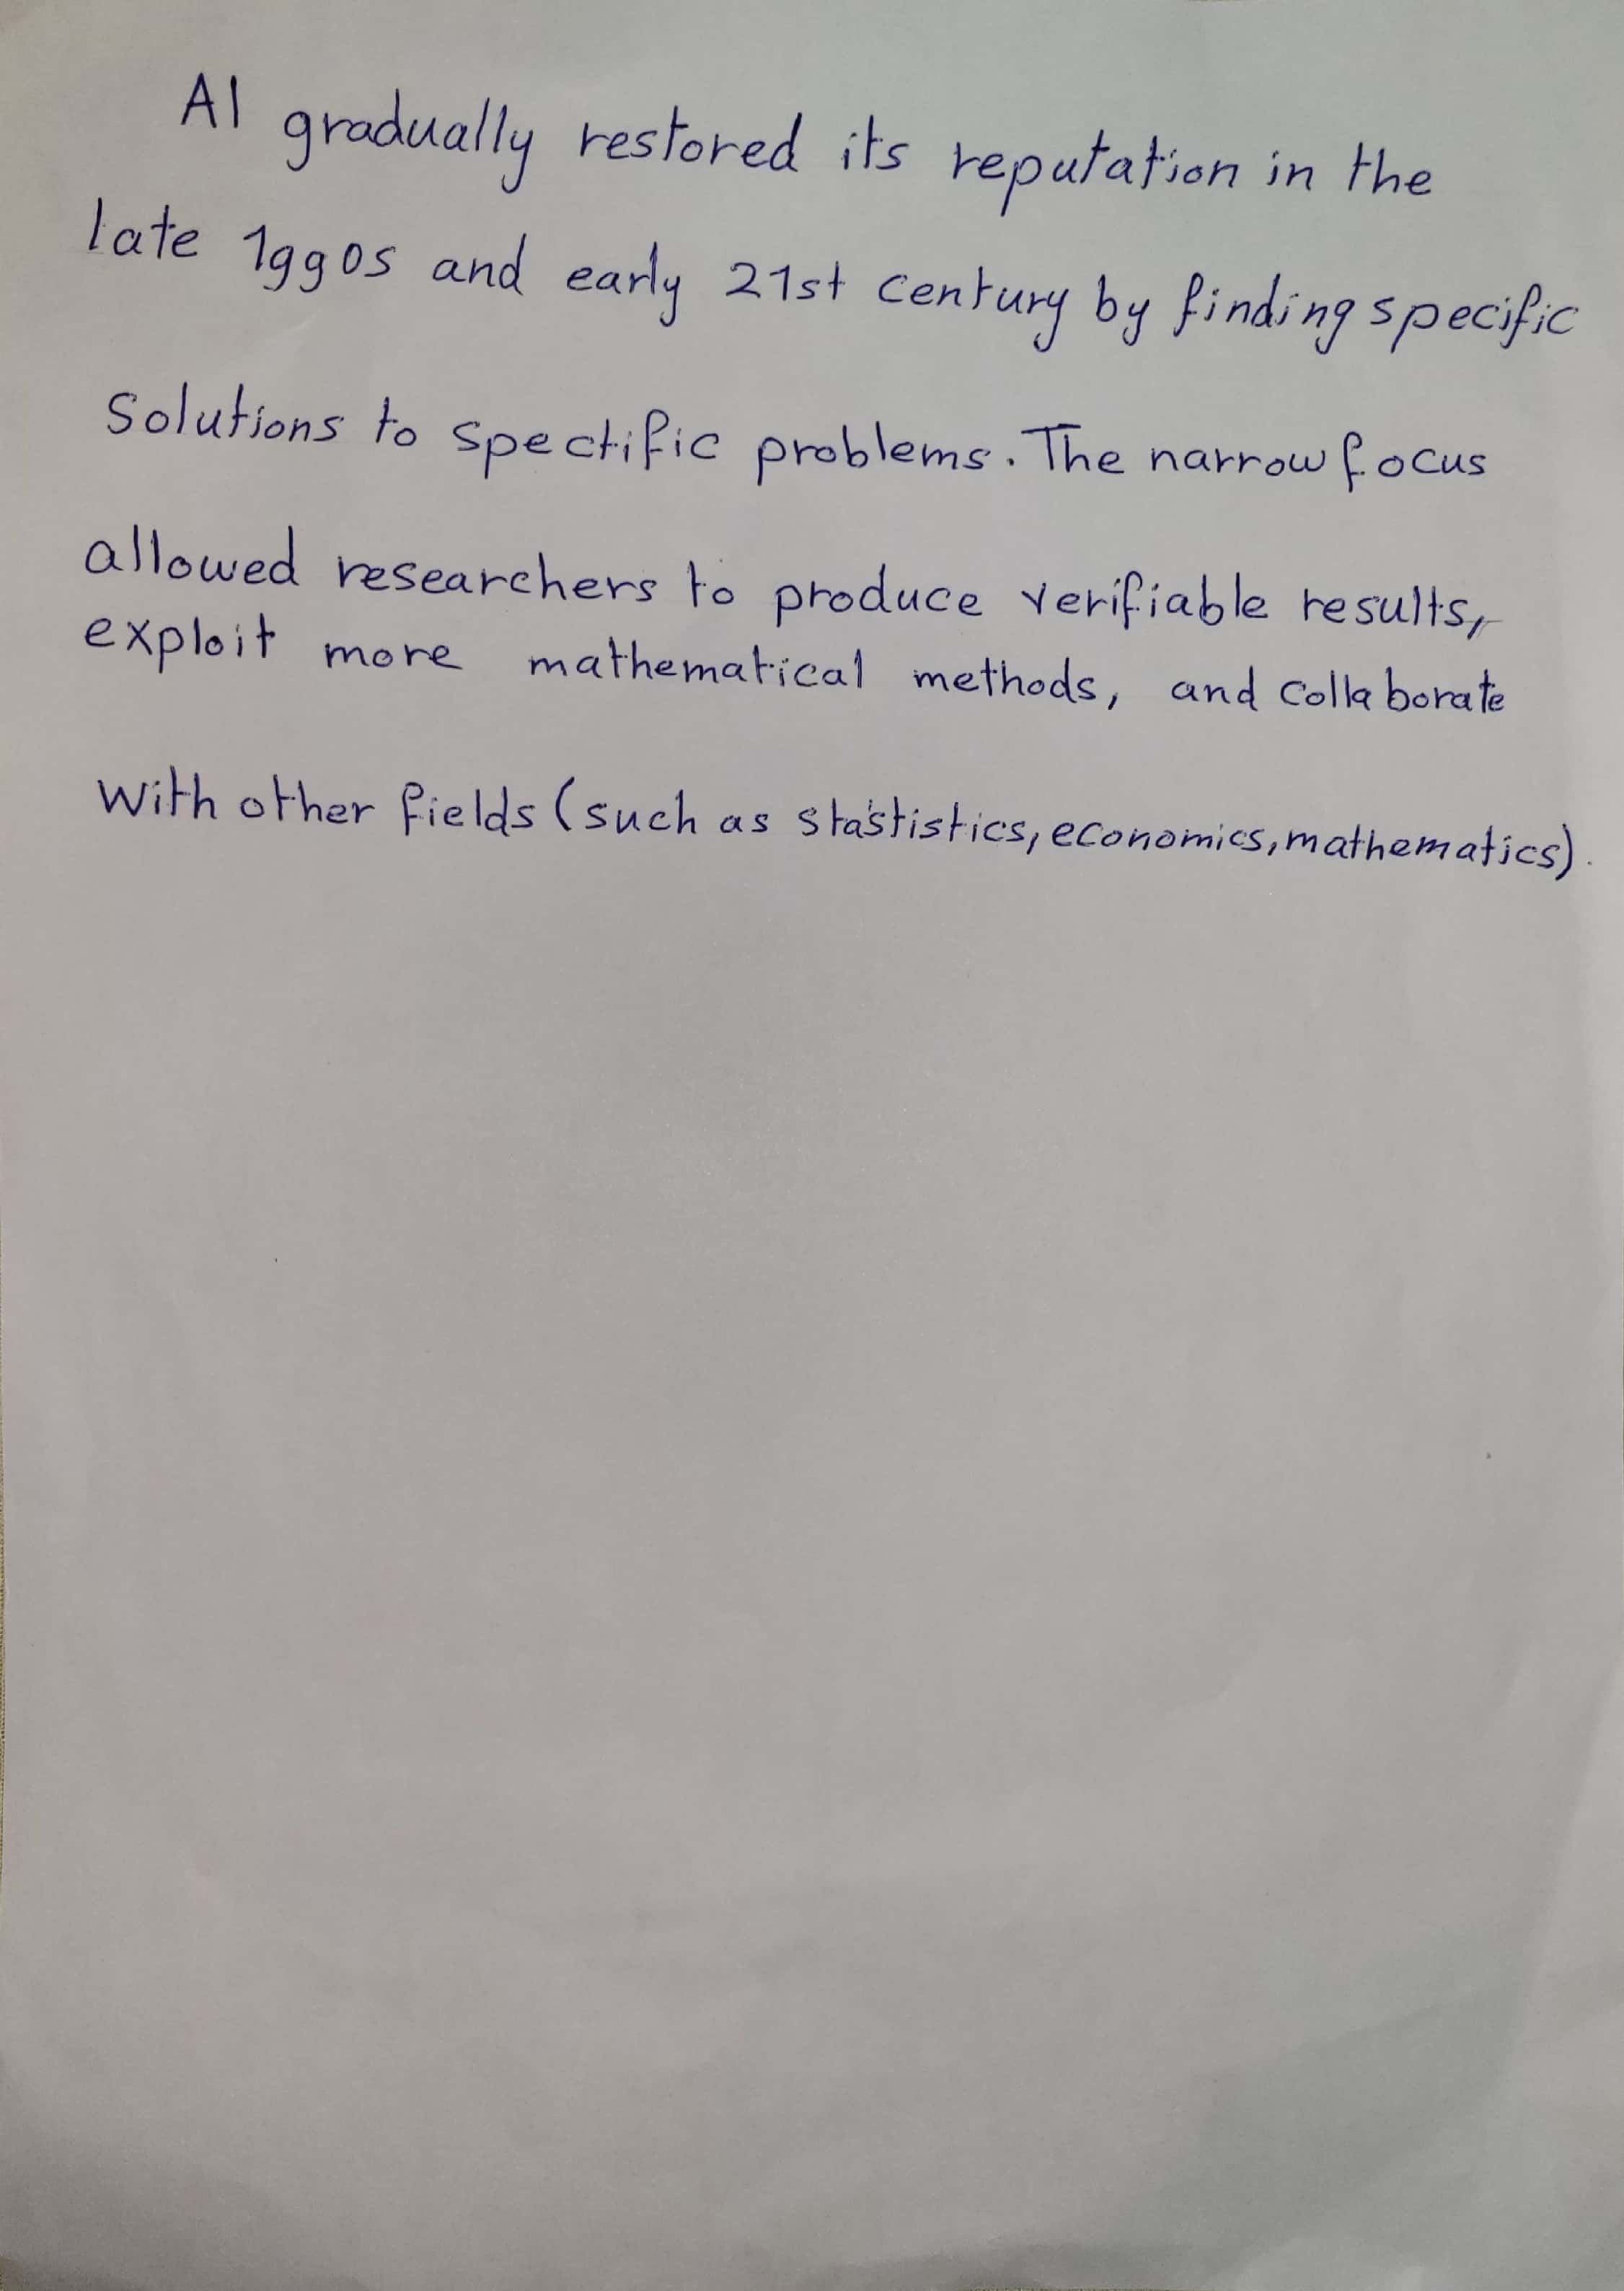 AI gradually restored its reputation in the
late 1990s and early 21st century by finding specific
Solutions to spectific problems. The narrow focus
allowed researchers to produce verifiable results,
exploit more mathematical methods, and collaborate
with other fields (such as stastistics, economics, mathematics).